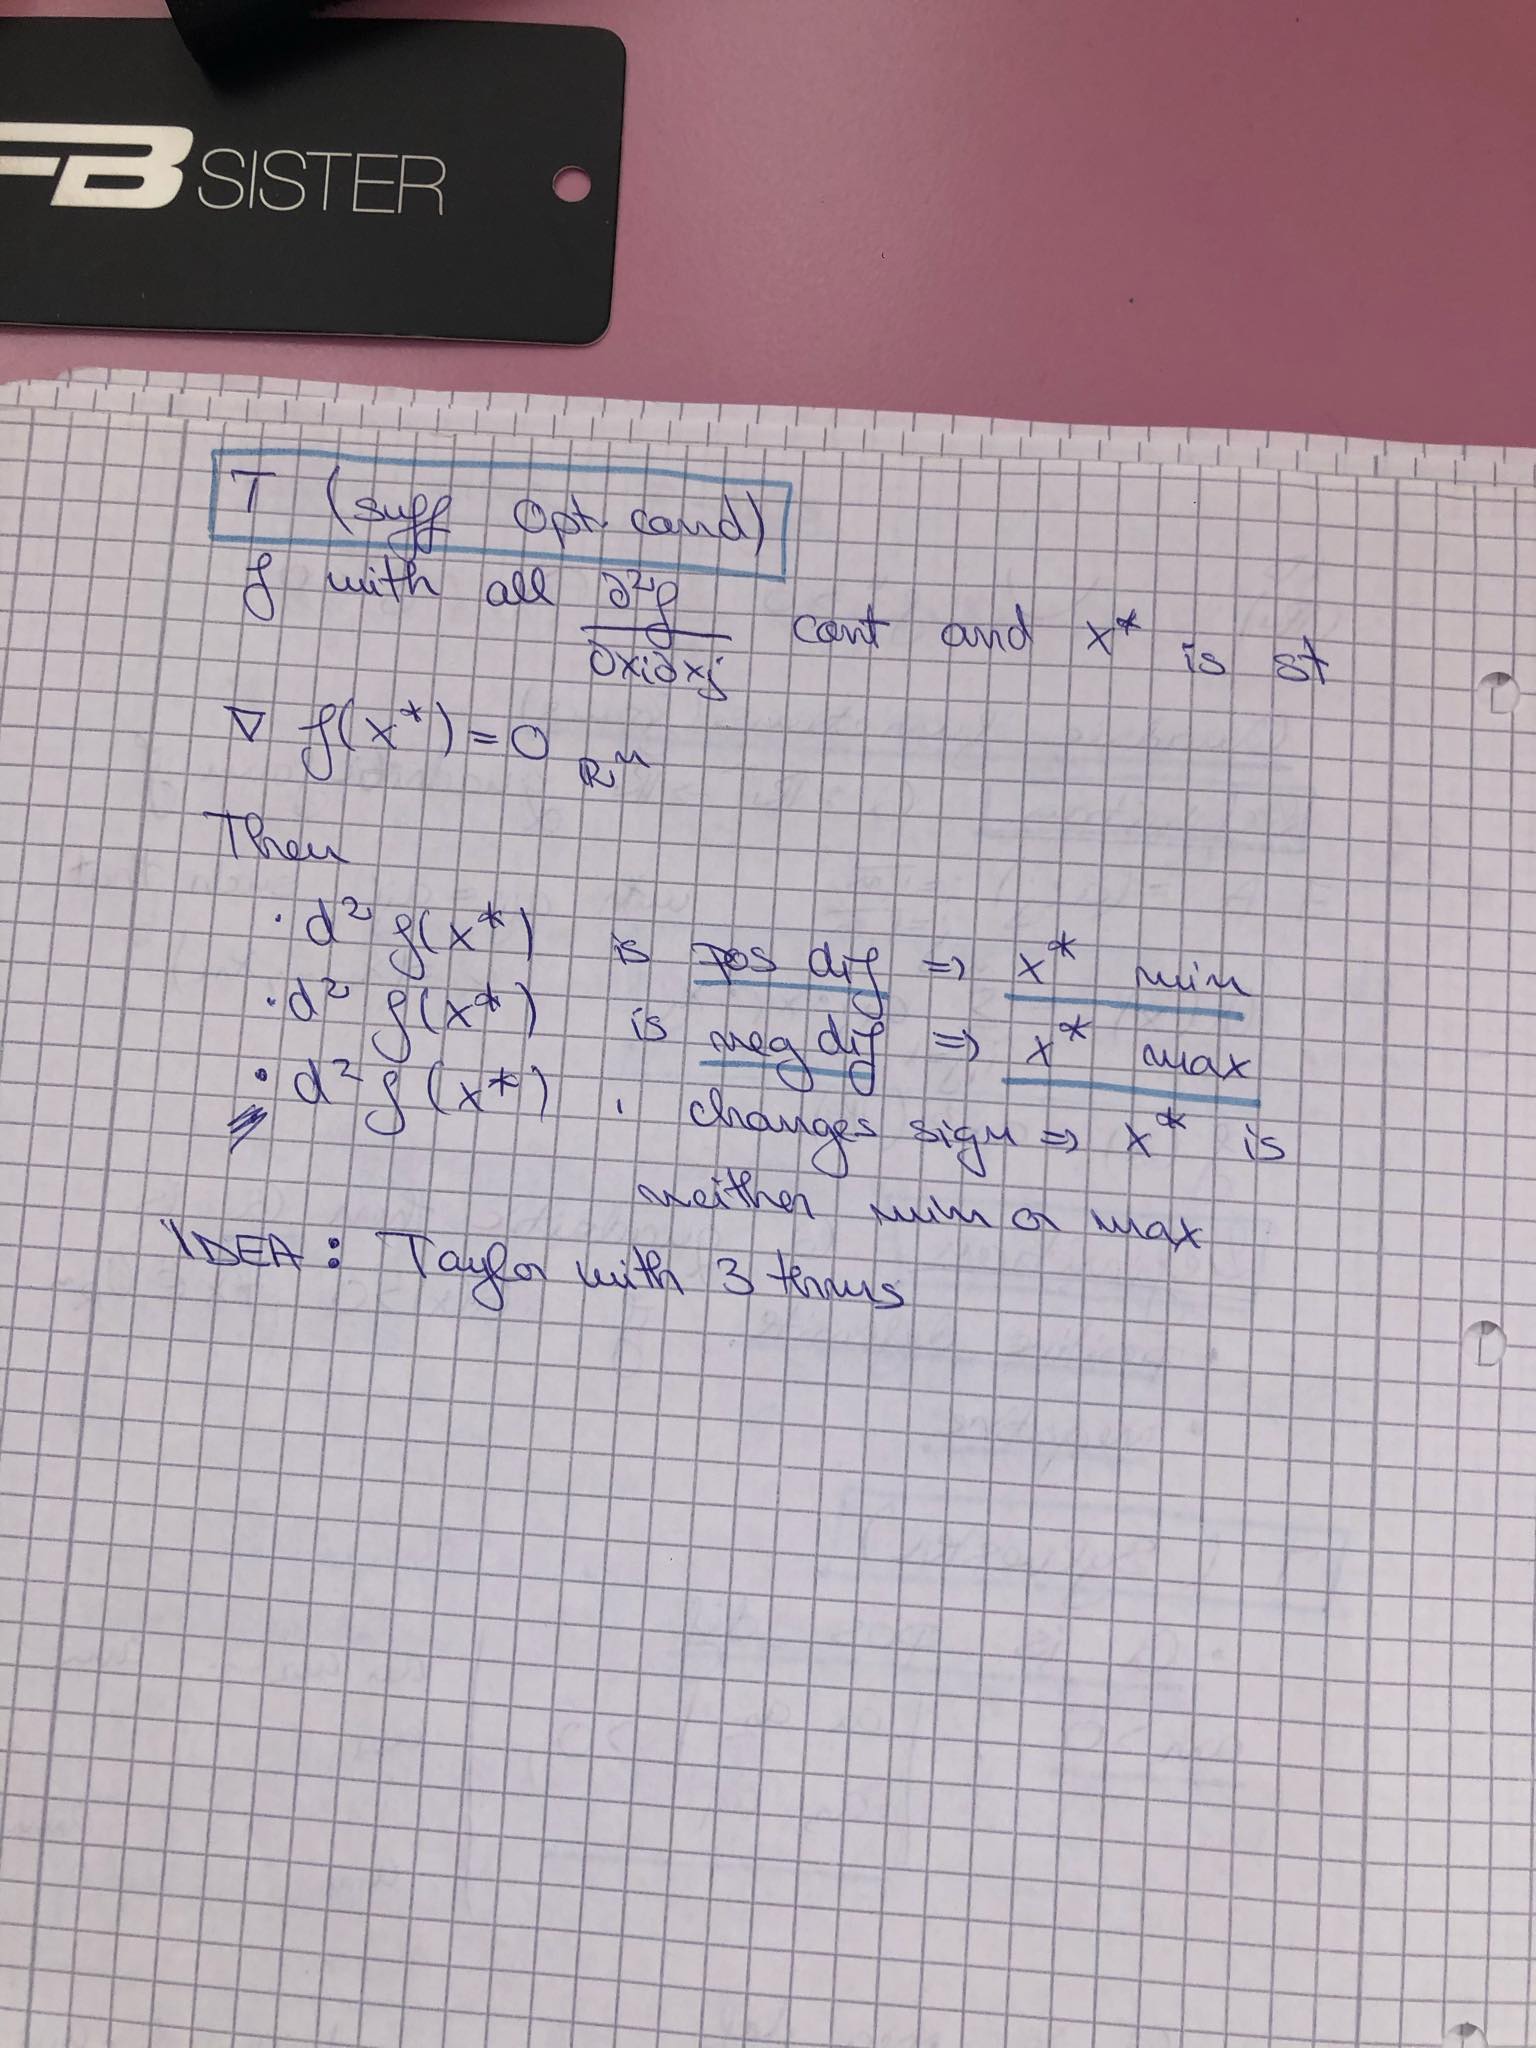 FB SISTER
T (suff opt cond)
f with all ∂²f/∂xi∂xj cont and x* is st
∇ f(x*) = 0 R^n
Then
· d² f(x*) is pos dif ⇒ x* min
· d² f(x*) is neg dif ⇒ x* max
• d² f(x*) changes sign ⇒ x* is
neither min or max
IDEA: Taylor with 3 terms